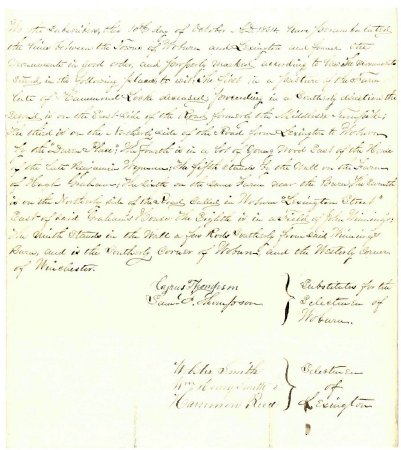 We the Subscribers, this 10th day of October AD 1864, have perambulated
the lines between the Towns of Woburn and Lexington and found the
Monuments in good order, and properly marked according to law. The monuments
stand in the following places to wit. The first in a pasture on the Farm
late of Hammond Locke deceased, proceeding in a Southerly direction the
Second is on the East side of the Road formerly the Middlesex Turnpike.
The third is on the Northerly side of the Road from Lexington to Woburn
The Fourth is in a lot of Young Wood East of the House
of the late Benjamin Wyman. The fifth stands by the Wall on the Farm
of Hugh Graham. The sixth on the same Farm near the Barn. The seventh
is on the Northerly side of the Road Called in Woburn "Lexington Street"
East of said Graham's House. The Eighth is in a Field of John
The Ninth Stands in the Wall a few Rods Southerly from said
Barn, and is the Southerly Corner of Woburn, and the Westerly Corner
of Winchester.
Cyrus Thompson
Thompson
Substitutes for the
Selectmen of
Woburn.
Webster Smith
Wm Henry Smith
Hammon Reed
Selectmen
of
Lexington